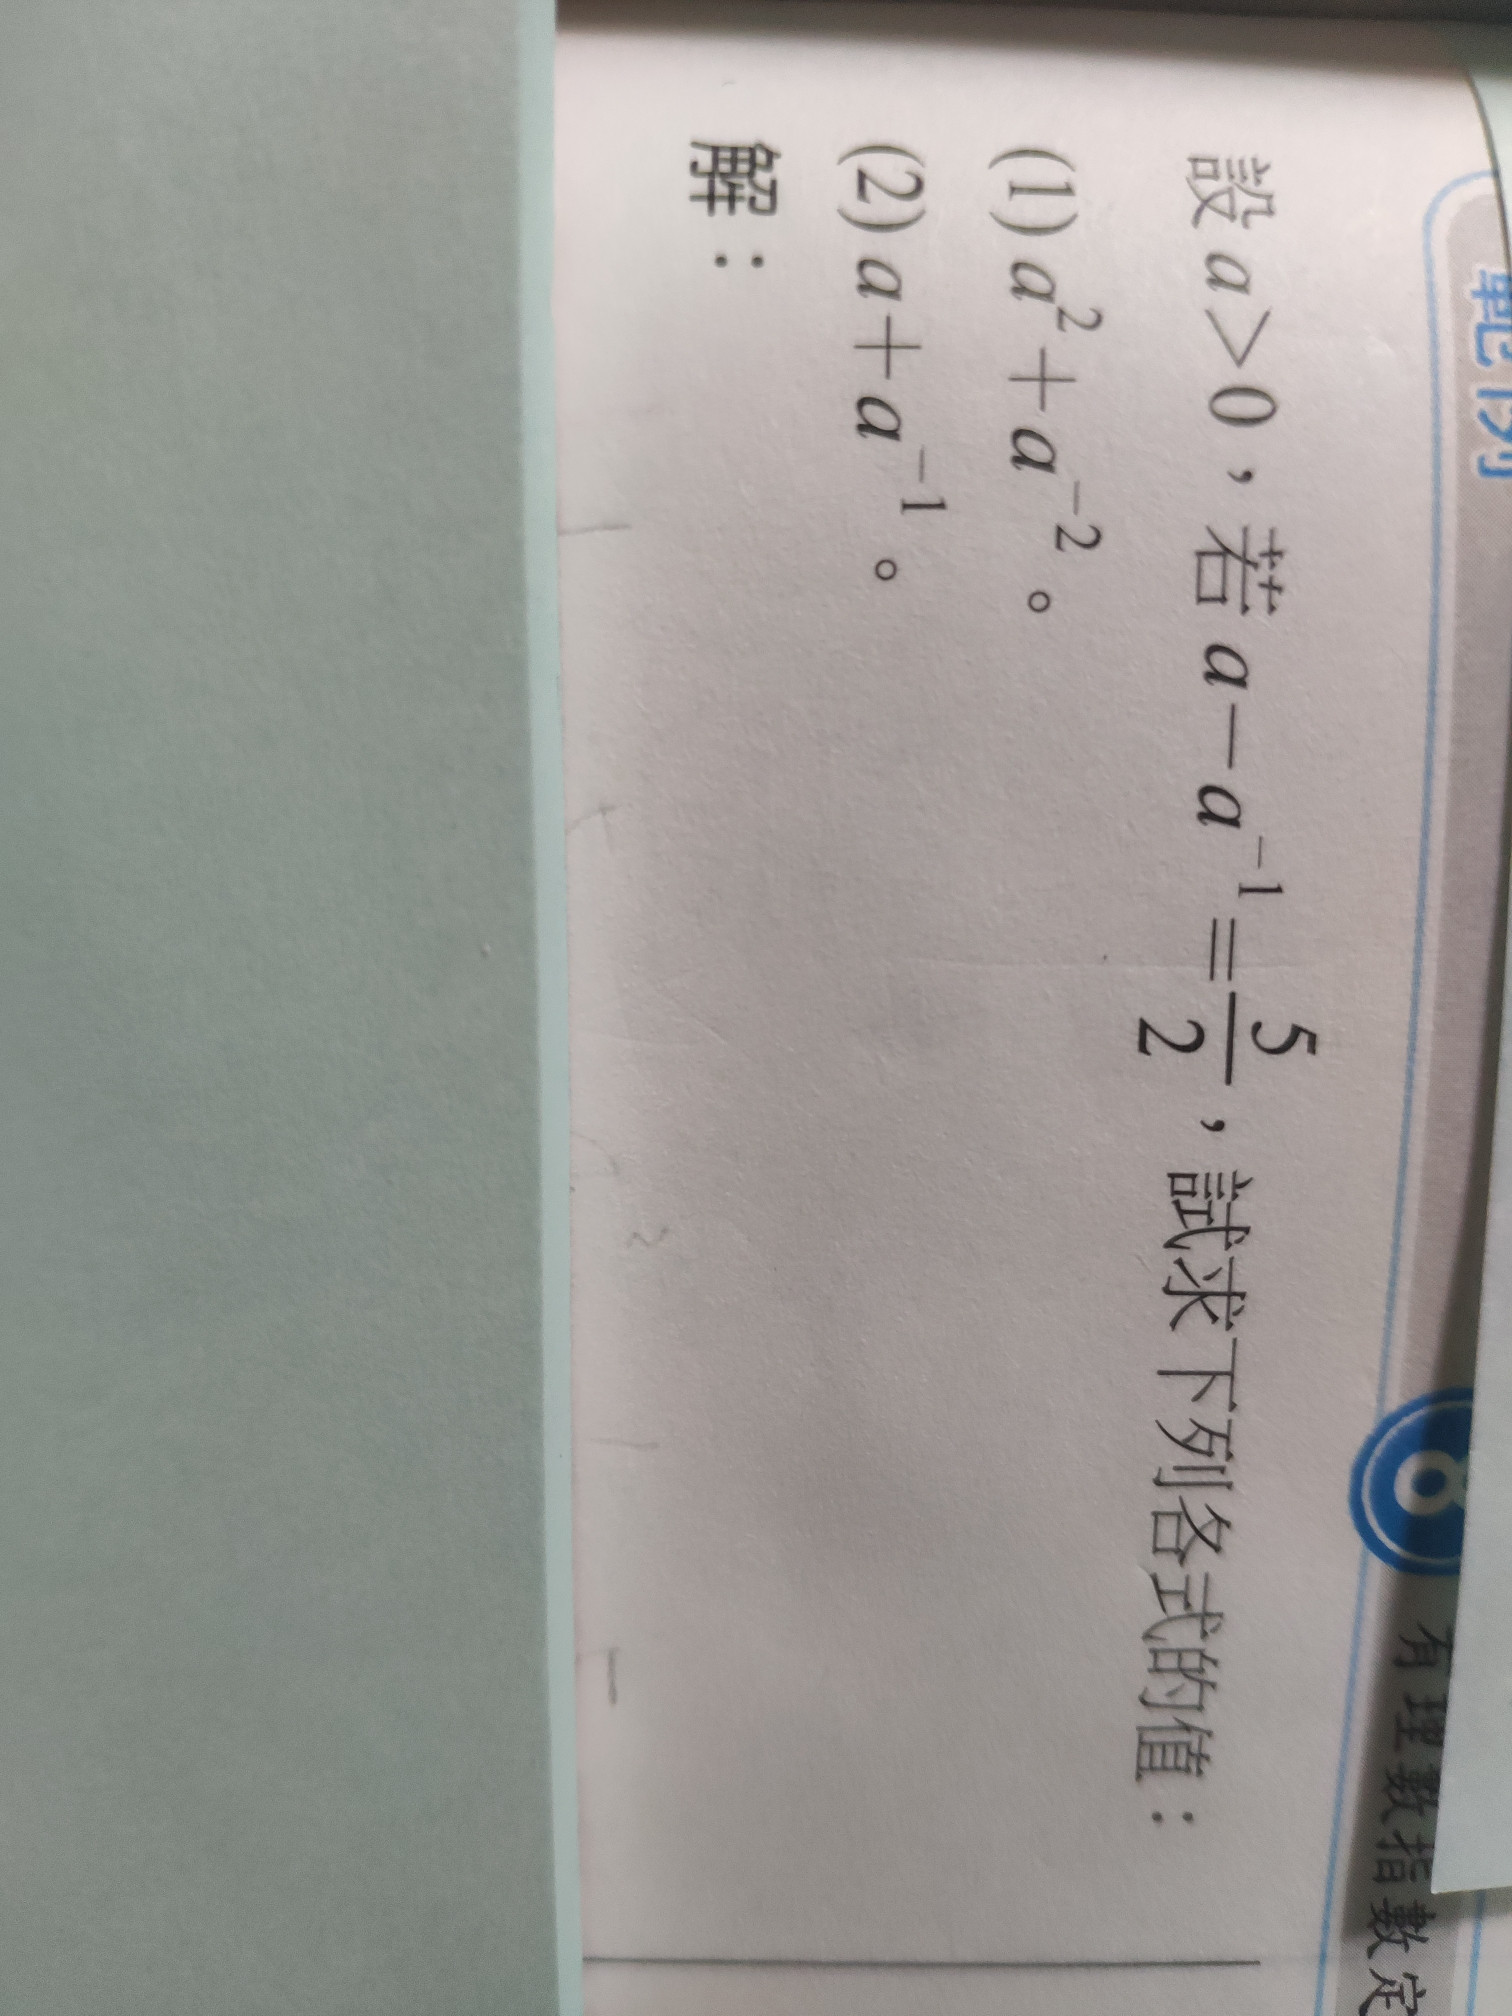 範例 8 有理數指數定
設 a > 0，若 a − a⁻¹ = 5/2，試求下列各式的值：
(1) a² + a⁻²。
(2) a + a⁻¹。
解：